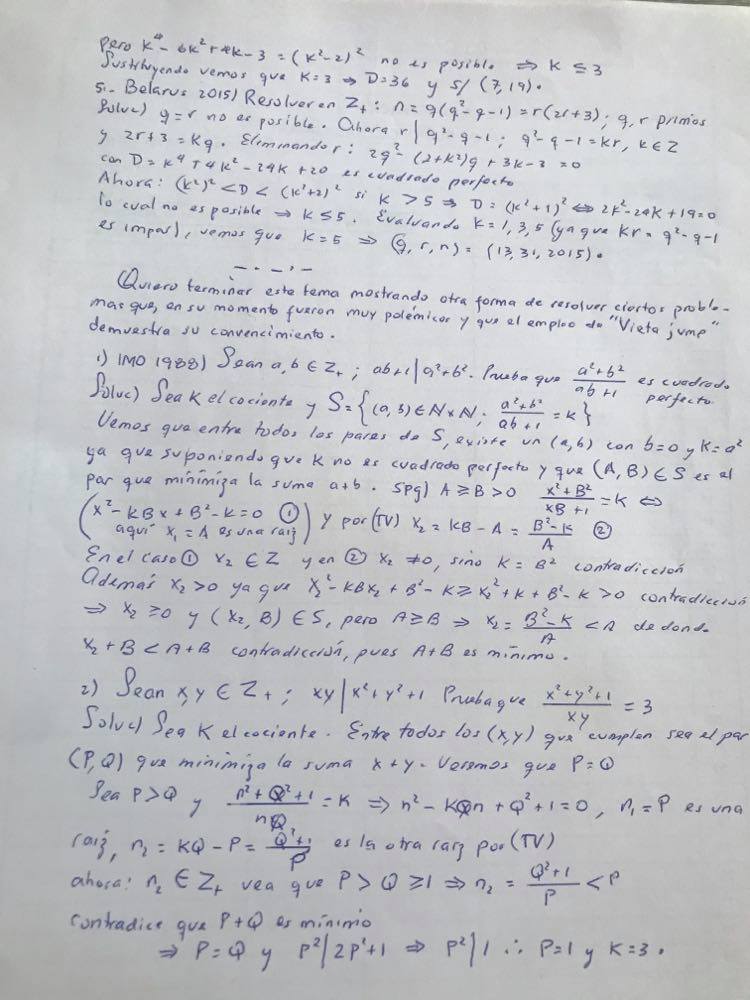 Pero K⁴ - 6K² + 4K - 3 = (K² - 2)² no es posible ⇒ K ≤ 3
Sustituyendo vemos que K=3 ⇒ D=36 y S/ (7,19).
5.- Belarus 2015) Resolver en Z₊ : n = q(q²-q-1) = r(2r+3); q, r primos
Soluc) q=r no es posible. Ahora r | q²-q-1 ; q²-q-1 = kr, k ∈ Z
y 2r+3 = Kq. Eliminando r: 2q² - (2+k²)q + 3k - 2 = 0
con D = K⁴ + 4K² - 24K + 20 es cuadrado perfecto
Ahora: (K²)² < D < (K²+2)² si K > 5 ⇒ D = (K²+1)² ⇔ 2K²-24K+19=0
lo cual no es posible ⇒ K ≤ 5. Evaluando K = 1, 3, 5 (ya que Kr = q²-q-1
es impar), vemos que K=5 ⇒ (q, r, n) = (13, 31, 2015).
Quiero terminar este tema mostrando otra forma de resolver ciertos proble-
mas que, en su momento fueron muy polémicos y que el empleo de "Vieta jump"
demuestra su convencimiento.
1) IMO 1988) Sean a, b ∈ Z₊ ; ab+1 | a²+b². Prueba que (a²+b²)/(ab+1) es cuadrado
perfecto.
Soluc) Sea K el cociente y S = {(a, b) ∈ N x N; (a²+b²)/(ab+1) = K}
Vemos que entre todos los pares de S, existe un (a,b) con b=0 y K=a²
ya que suponiendo que K no es cuadrado perfecto y que (A, B) ∈ S es el
par que minimiza la suma a+b. spg) A ≥ B > 0 (x²+B²)/(xB+1) = K ⇔
(x² - KBx + B² - K = 0 ① aquí x₁ = A es una raíz) y por (TV) x₂ = KB - A = (B²-K)/A ②
En el caso ① x₂ ∈ Z y en ② x₂ ≠ 0, sino K = B² contradicción
Además x₂ > 0 ya que x₂² - KBx₂ + B² - K ≥ x₂² + K + B² - K > 0 contradicción
⇒ x₂ ≥ 0 y (x₂, B) ∈ S, pero A ≥ B ⇒ x₂ = (B²-K)/A < A de donde
x₂ + B < A + B contradicción, pues A+B es mínimo.
2) Sean x, y ∈ Z₊ ; xy | x²+y²+1 Prueba que (x²+y²+1)/(xy) = 3
Soluc) Sea K el cociente. Entre todos los (x,y) que cumplen sea el par
(P, Q) que minimiza la suma x+y. Veremos que P=Q
Sea P>Q y (n²+Q²+1)/(nQ) = K ⇒ n² - KQn + Q² + 1 = 0, n₁ = P es una
raíz, n₂ = KQ - P = (Q²+1)/P es la otra raíz por (TV)
ahora: n₂ ∈ Z₊ vea que P > Q ≥ 1 ⇒ n₂ = (Q²+1)/P < P
contradice que P+Q es mínimo
⇒ P=Q y P² | 2P²+1 ⇒ P² | 1 ∴ P=1 y K=3.